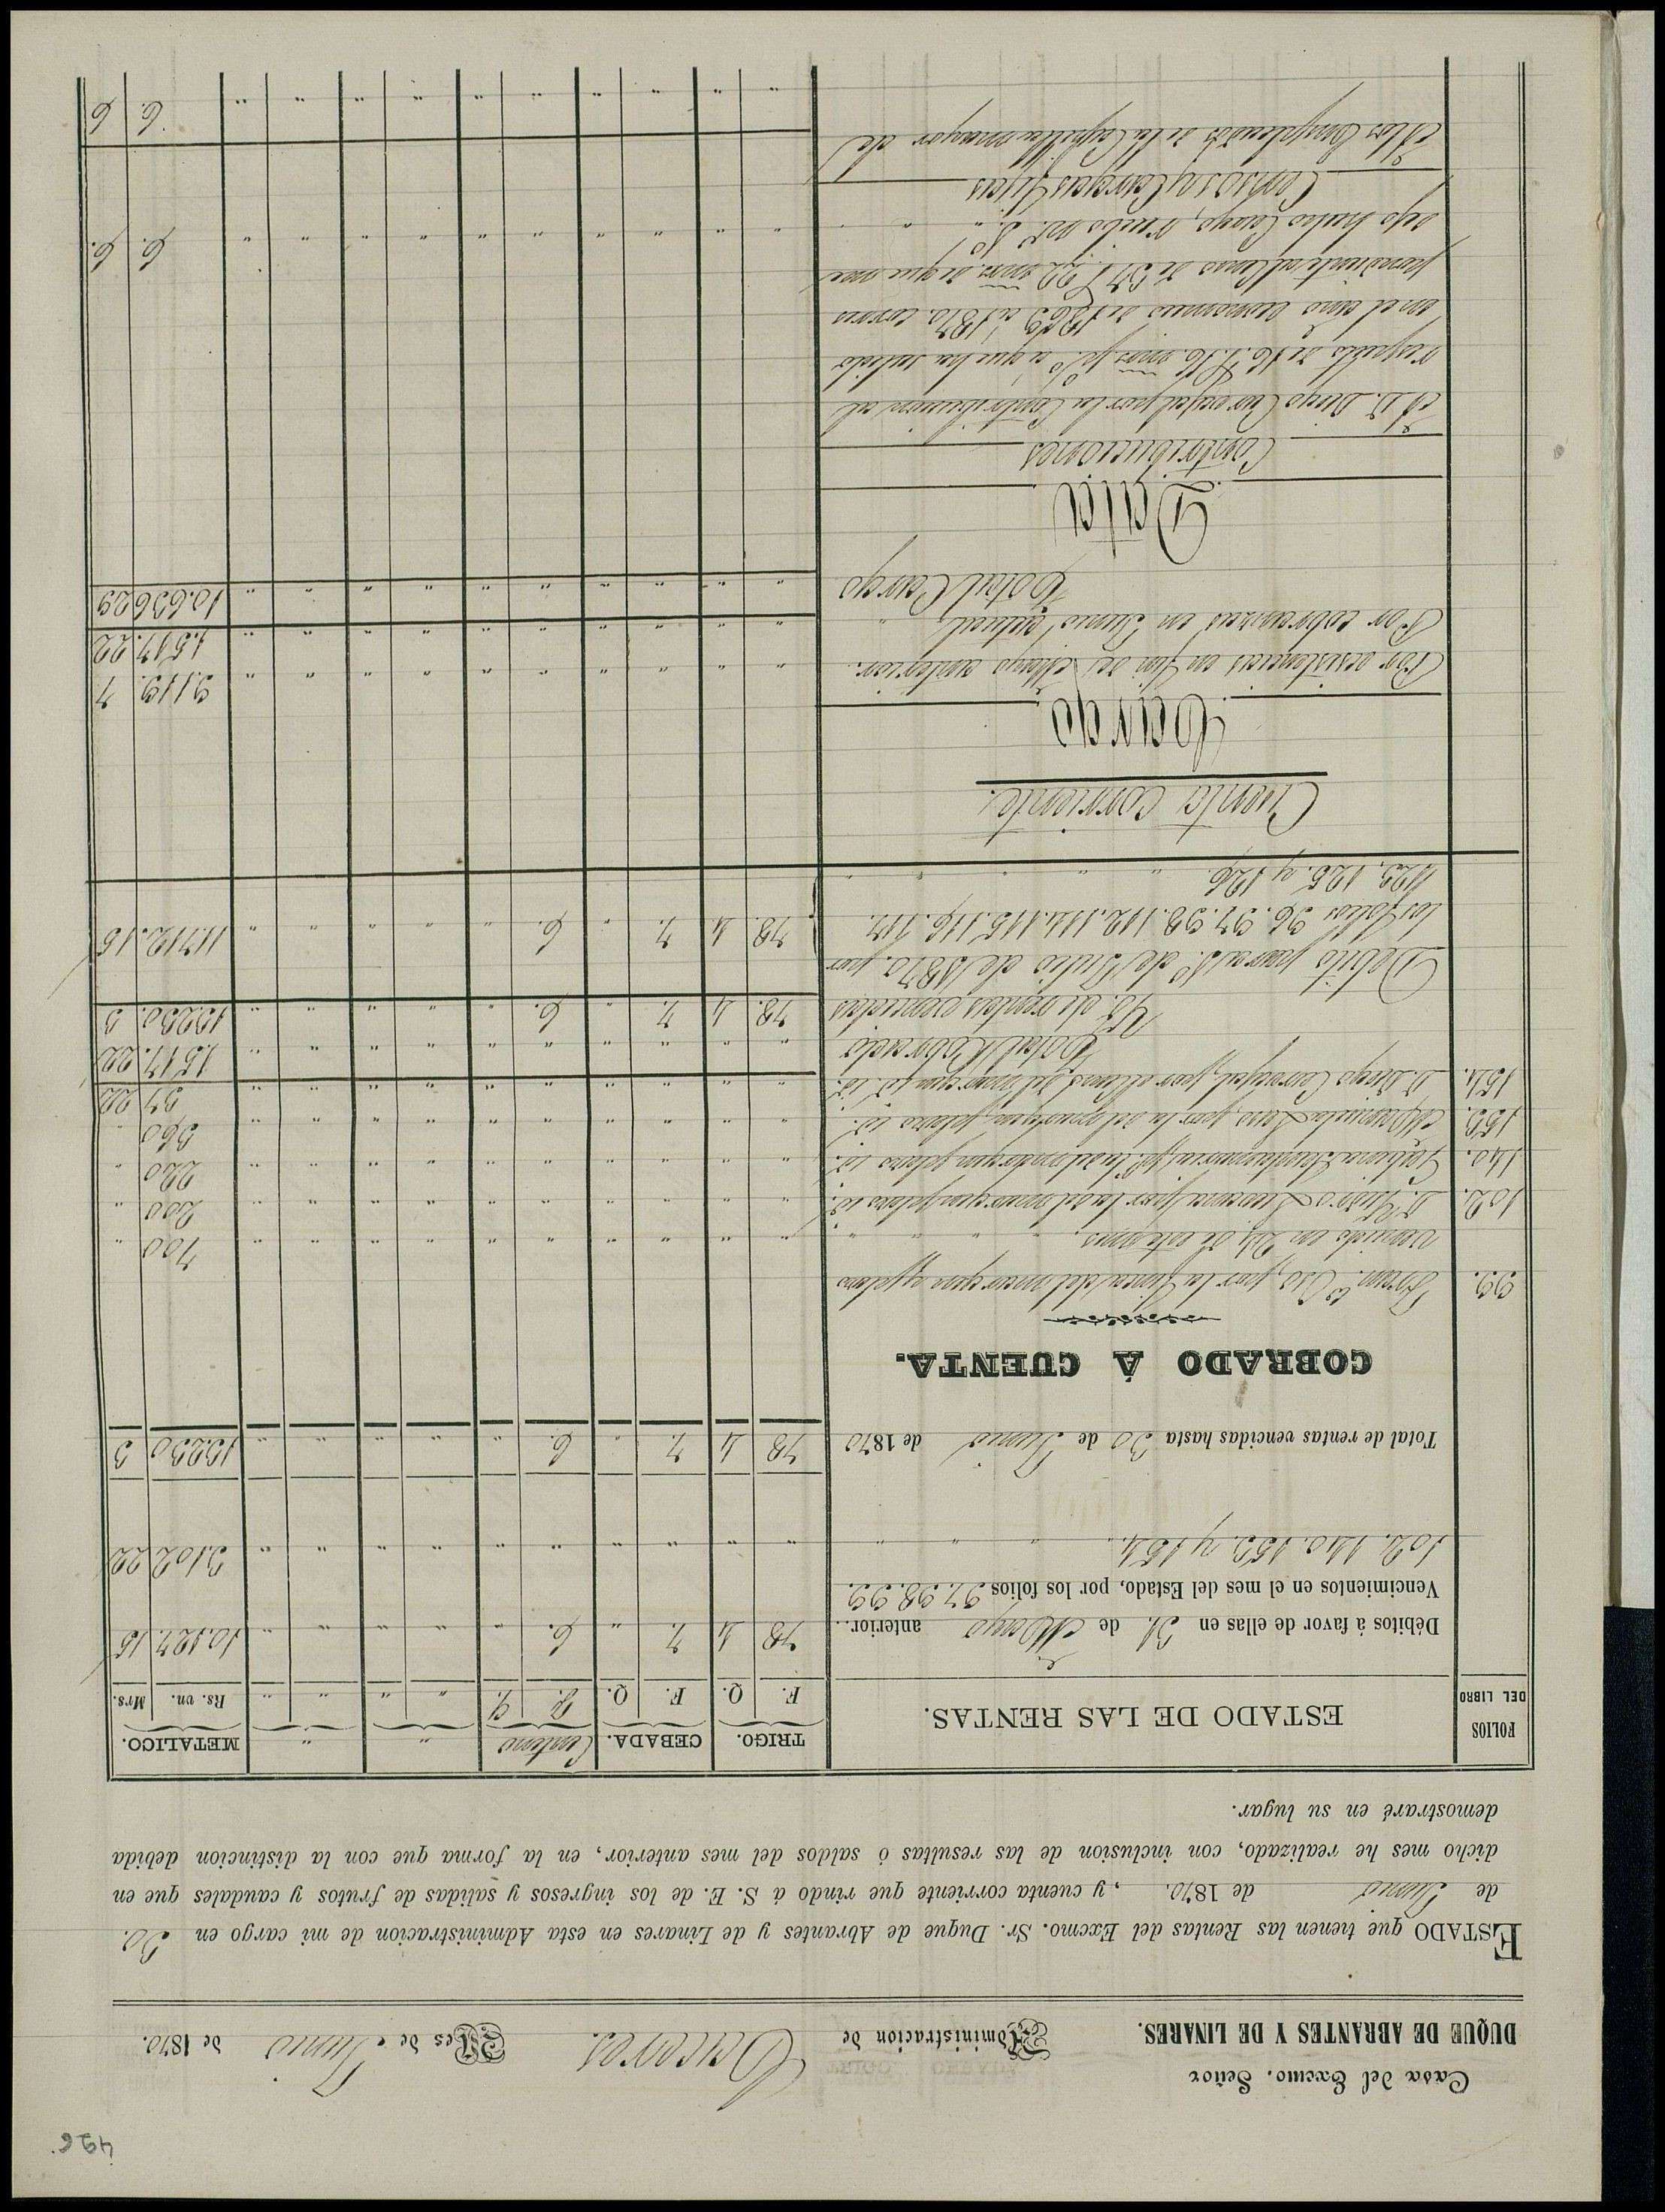 426.
Casa del Excmo. Señor
DUQUE DE ABRANTES Y DE LINARES.
Administracion de Caceres. Mes de Junio de 1870.
ESTADO que tienen las Rentas del Excmo. Sr. Duque de Abrantes y de Linares en esta Administracion de mi cargo en 30.
de Junio de 1870. , y cuenta corriente que rindo á S. E. de los ingresos y salidas de frutos y caudales que en
dicho mes he realizado, con inclusion de las resultas ó saldos del mes anterior, en la forma que con la distincion debida
demostraré en su lugar.
FOLIOS DEL LIBRO ESTADO DE LAS RENTAS. TRIGO. CEBADA. Centeno " " METALICO.
F. Q. F. Q. F. Q. " " " " Rs. vn. Mrs.
Débitos á favor de ellas en 31. de Mayo anterior.. 78 4 7. " 6. " " " " " 10.127. 15
Vencimientos en el mes del Estado, por los folios 97. 98. 99.
102. 140. 153. y 154. " " " " " " " " " " 3.102 22
Total de rentas vencidas hasta 30 de Junio de 1870 78 4 7. " 6. " " " " " 13.230 3
COBRADO Á CUENTA.
99. Fran.co por la finca del margen y plazo
vencido en 24 de este mes. " " " " " " " " " " 700 "
102. D. Isidro por la del margen y plazo id. " " " " " " " " " " 200 "
140. Santamaria p.r la del margen y plazo id. " " " " " " " " " " 220 "
153. por la del margen y plazo id. " " " " " " " " " " 360 "
154. D. Diego Carvajal, por el censo del margen y id. id. " " " " " " " " " " 37 22
Total Cobrado " " " " " " " " " " 1.517. 22
Yd. de rentas vencidas 78. 4 7. " 6. " " " " " 13.230. 3
Débito para 1.o de Julio de 1870. por
los folios 96. 97. 98. 112. 114. 115. 116. 117.
123. 125. y 126. 78. 4 7. " 6. " " " " " 11.712. 15
Cuenta corriente.
Cargo
Por existencias en fin de Mayo anterior. " " " " " " " " " " 9.119. 7
Por cobranzas en Junio actual " " " " " " " " " " 1.517. 22
Total Cargo " " " " " " " " " " 10.636 29
Data
Contribuciones
A D. Diego Carvajal por la Contribucion al
respecto de 16. r.s 16. mrs. p.r % á que ha salido
en el año economico de 1869 á 1870. corres
pondiente al censo de 37 r.s 22 mrs. de que me
dejo hecho Cargo, recibo n.o 1.o " " " " " " " " " " 6. 6.
Censos y Cargas fijas
A los Empleados de la Capilla mayor de " " " " " " " " " " 6. 6